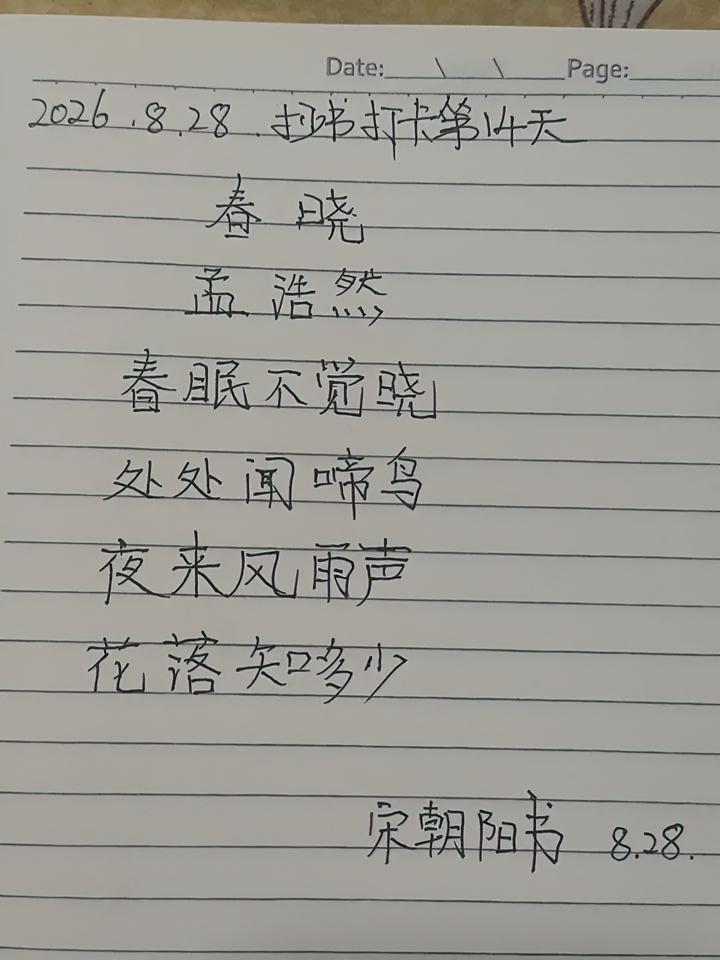 Date: \ \ Page:
2026.8.28.抄书打卡第14天
春晓
孟浩然
春眠不觉晓
处处闻啼鸟
夜来风雨声
花落知多少
宋朝阳书 8.28.